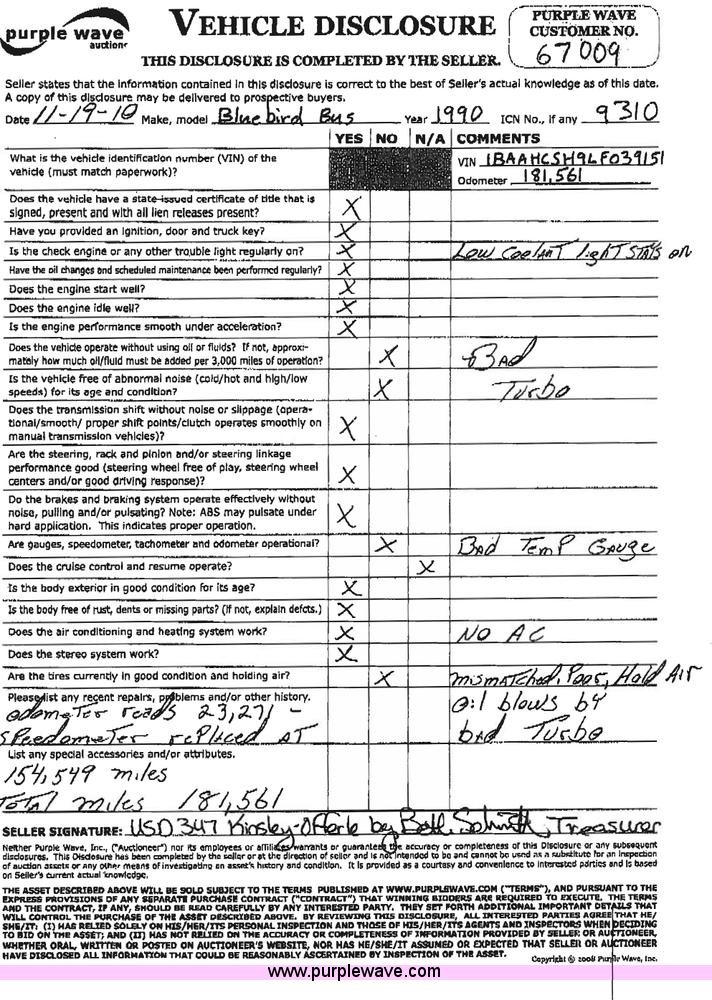 purple wave
auction
VEHICLE DISCLOSURE
THIS DISCLOSURE IS COMPLETED BY THE SELLER.
PURPLE WAVE
CUSTOMER NO.
67009
Seller states that the information contained in this disclosure is correct to the best of Seller's actual knowledge as of this date.
A copy of this disclosure may be delivered to prospective buyers.
Date 11-19-10 Make, model Bluebird Bus Year 1990 ICN No., if any 9310
YES NO N/A COMMENTS
What is the vehicle identification number (VIN) of the
vehicle (must match paperwork)?
VIN 1BAAHCSH9LF039151
Odometer 181,561
Does the vehicle have a state-issued certificate of title that is
signed, present and with all lien releases present? X
Have you provided an ignition, door and truck key? X
Is the check engine or any other trouble light regularly on? X Low Coolant light STAYS on
Have the oil changes and scheduled maintenance been performed regularly? X
Does the engine start well? X
Does the engine idle well? X
Is the engine performance smooth under acceleration? X
Does the vehicle operate without using oil or fluids? If not, approxi-
mately how much oil/fluid must be added per 3,000 miles of operation? X Bad
Is the vehicle free of abnormal noise (cold/hot and high/low
speeds) for its age and condition? X Turbo
Does the transmission shift without noise or slippage (opera-
tional/smooth/ proper shift points/clutch operates smoothly on
manual transmission vehicles)? X
Are the steering, rack and pinion and/or steering linkage
performance good (steering wheel free of play, steering wheel
centers and/or good driving response)? X
Do the brakes and braking system operate effectively without
noise, pulling and/or pulsating? Note: ABS may pulsate under
hard application. This indicates proper operation. X
Are gauges, speedometer, tachometer and odometer operational? X BAD Temp GAUge
Does the cruise control and resume operate? X
Is the body exterior in good condition for its age? X
Is the body free of rust, dents or missing parts? (If not, explain defcts.) X
Does the air conditioning and heating system work? X NO AC
Does the stereo system work? X
Are the tires currently in good condition and holding air? X mismatched, Poor, Hold Air
Please list any recent repairs, problems and/or other history.
odometer reads 23,271 -
speedometer replaced AT
oil blows by
bad Turbo
List any special accessories and/or attributes.
154,549 miles
Total miles 181,561
SELLER SIGNATURE: USD 347 Kinsley-Offerle by Beth Schmitt, Treasurer
Neither Purple Wave, Inc., ("Auctioneer") nor its employees or affiliates warrants or guarantees the accuracy or completeness of this Disclosure or any subsequent
disclosures. This Disclosure has been completed by the seller or at the direction of seller and is not intended to be and cannot be used as a substitute for an inspection
of auction assets or any other means of investigating an asset's history and condition. It is provided as a courtesy and convenience to interested parties and is based
on Seller's current actual knowledge.
THE ASSET DESCRIBED ABOVE WILL BE SOLD SUBJECT TO THE TERMS PUBLISHED AT WWW.PURPLEWAVE.COM ("TERMS"), AND PURSUANT TO THE
EXPRESS PROVISIONS OF ANY SEPARATE PURCHASE CONTRACT ("CONTRACT") THAT WINNING BIDDERS ARE REQUIRED TO EXECUTE. THE TERMS
AND THE CONTRACT, IF ANY, SHOULD BE READ CAREFULLY BY ANY INTERESTED PARTY. THEY SET FORTH ADDITIONAL IMPORTANT DETAILS THAT
WILL CONTROL THE PURCHASE OF THE ASSET DESCRIBED ABOVE. BY REVIEWING THIS DISCLOSURE, ALL INTERESTED PARTIES AGREE THAT HE/
SHE/IT: (I) HAS RELIED SOLELY ON HIS/HER/ITS PERSONAL INSPECTION AND THOSE OF HIS/HER/ITS AGENTS AND INSPECTORS WHEN DECIDING
TO BID ON THE ASSET; AND (II) HAS NOT RELIED ON THE ACCURACY OR COMPLETENESS OF INFORMATION PROVIDED BY SELLER OR AUCTIONEER,
WHETHER ORAL, WRITTEN OR POSTED ON AUCTIONEER'S WEBSITE, NOR HAS HE/SHE/IT ASSUMED OR EXPECTED THAT SELLER OR AUCTIONEER
HAVE DISCLOSED ALL INFORMATION THAT COULD BE REASONABLY ASCERTAINED BY INSPECTION OF THE ASSET.
Copyright © 2008 Purple Wave, Inc.
www.purplewave.com